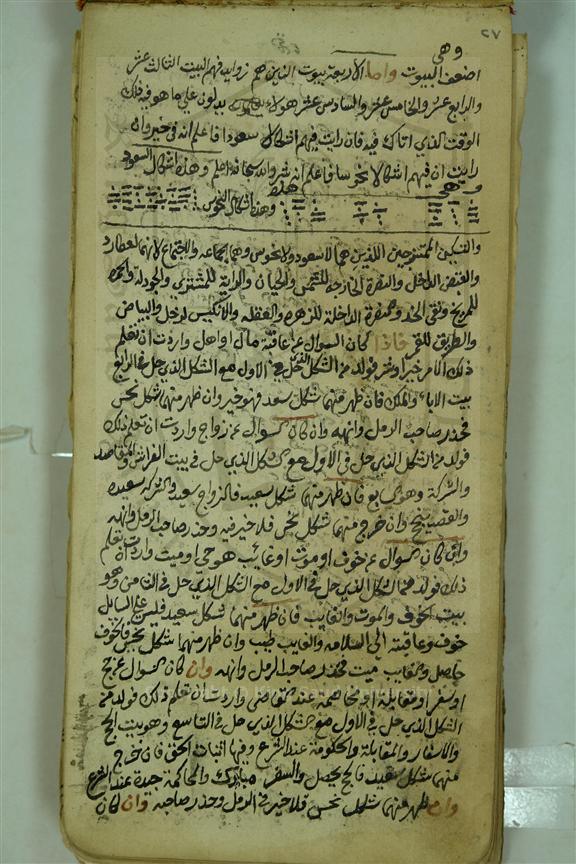 ٢٧
وهي
اضعف البيوت واما الاربعة بيوت الذين هم زوايد فهم البيت الثالث عشر
والرابع عشر والخامس عشر والسادس عشر هولاء يدلون علي ما هو فيه ذلك
الوقت الذي اتاك فيه فان رايت فيهم اشكالا سعودا فاعلم انه في خير وان
رايت ان فيهم اشكالا نحوسا فاعلم انه شر والله سبحانه اعلم وهذه اشكال السعود
وهذه اشكال النحوس
والشكلين الممتزجين اللذين هما لا سعود ولا نحوس وهما الجماعه والاجتماع لانهما لعطارد
والقبض الداخل والنصرة الخارجه للشمس والحيان والراية للمشتري والجودله والحمره
للمريخ ونقي الخد والنصرة الداخلة للزهره والعقله والانكيس لزحل والبياض
والطريق للقمر فاذا كان السوال عن عاقبة مال او اهل واردت ان تعلم
ذلك الامر خير او شر فولد من الشكل الذي حل في الاول مع الشكل الذي حل في الرابع
بيت الاباء والملك فان ظهر منهما شكل سعد فهو خير وان ظهر منهما شكل نحس
فحذر صاحب الرمل وانهه وان كان السوال عن زواج واردت ان تعلم ذلك
فولد من الشكل الذي حل في الاول مع الشكل الذي حل في بيت الفراش والمقاصد
والشركة وهو السابع فان ظهر منهما شكل سعيد فالزواج سعيد والشركه سعيده
والقصد ينجح وان خرج منهما شكل نحس فلا خير فيه وحذر صاحب الرمل وانهه
وان كان السوال عن خوف او موت او غايب هو حي او ميت واردت ان تعلم
ذلك فولد من الشكل الذي حل في الاول مع الشكل الذي حل في الثامن وهو
بيت الخوف والموت والغايب فان ظهر منهما شكل سعيد فليس على السايل
خوف وعاقبته الى السلامه والغايب طيب وان ظهر منهما شكل نحس فالخوف
حاصل والغايب ميت فحذر صاحب الرمل وانهه وان كان السوال عن حج
او سفر او مقابلة او مخاصمه عند القاضي واردت ان تعلم ذلك فولد من
الشكل الذي حل في الاول مع الشكل الذي حل في التاسع وهو بيت الحج
والاسفار والمقابلة والحكومة عند الشرع وفيها اثبات الحق فان خرج
منهما شكل سعيد فالحج يحصل والسفر مبارك والمحاكمة جيدة عند الشرع
وان ظهر منهما شكل نحس فلا خير في الرمل وحذر صاحبه وان كان